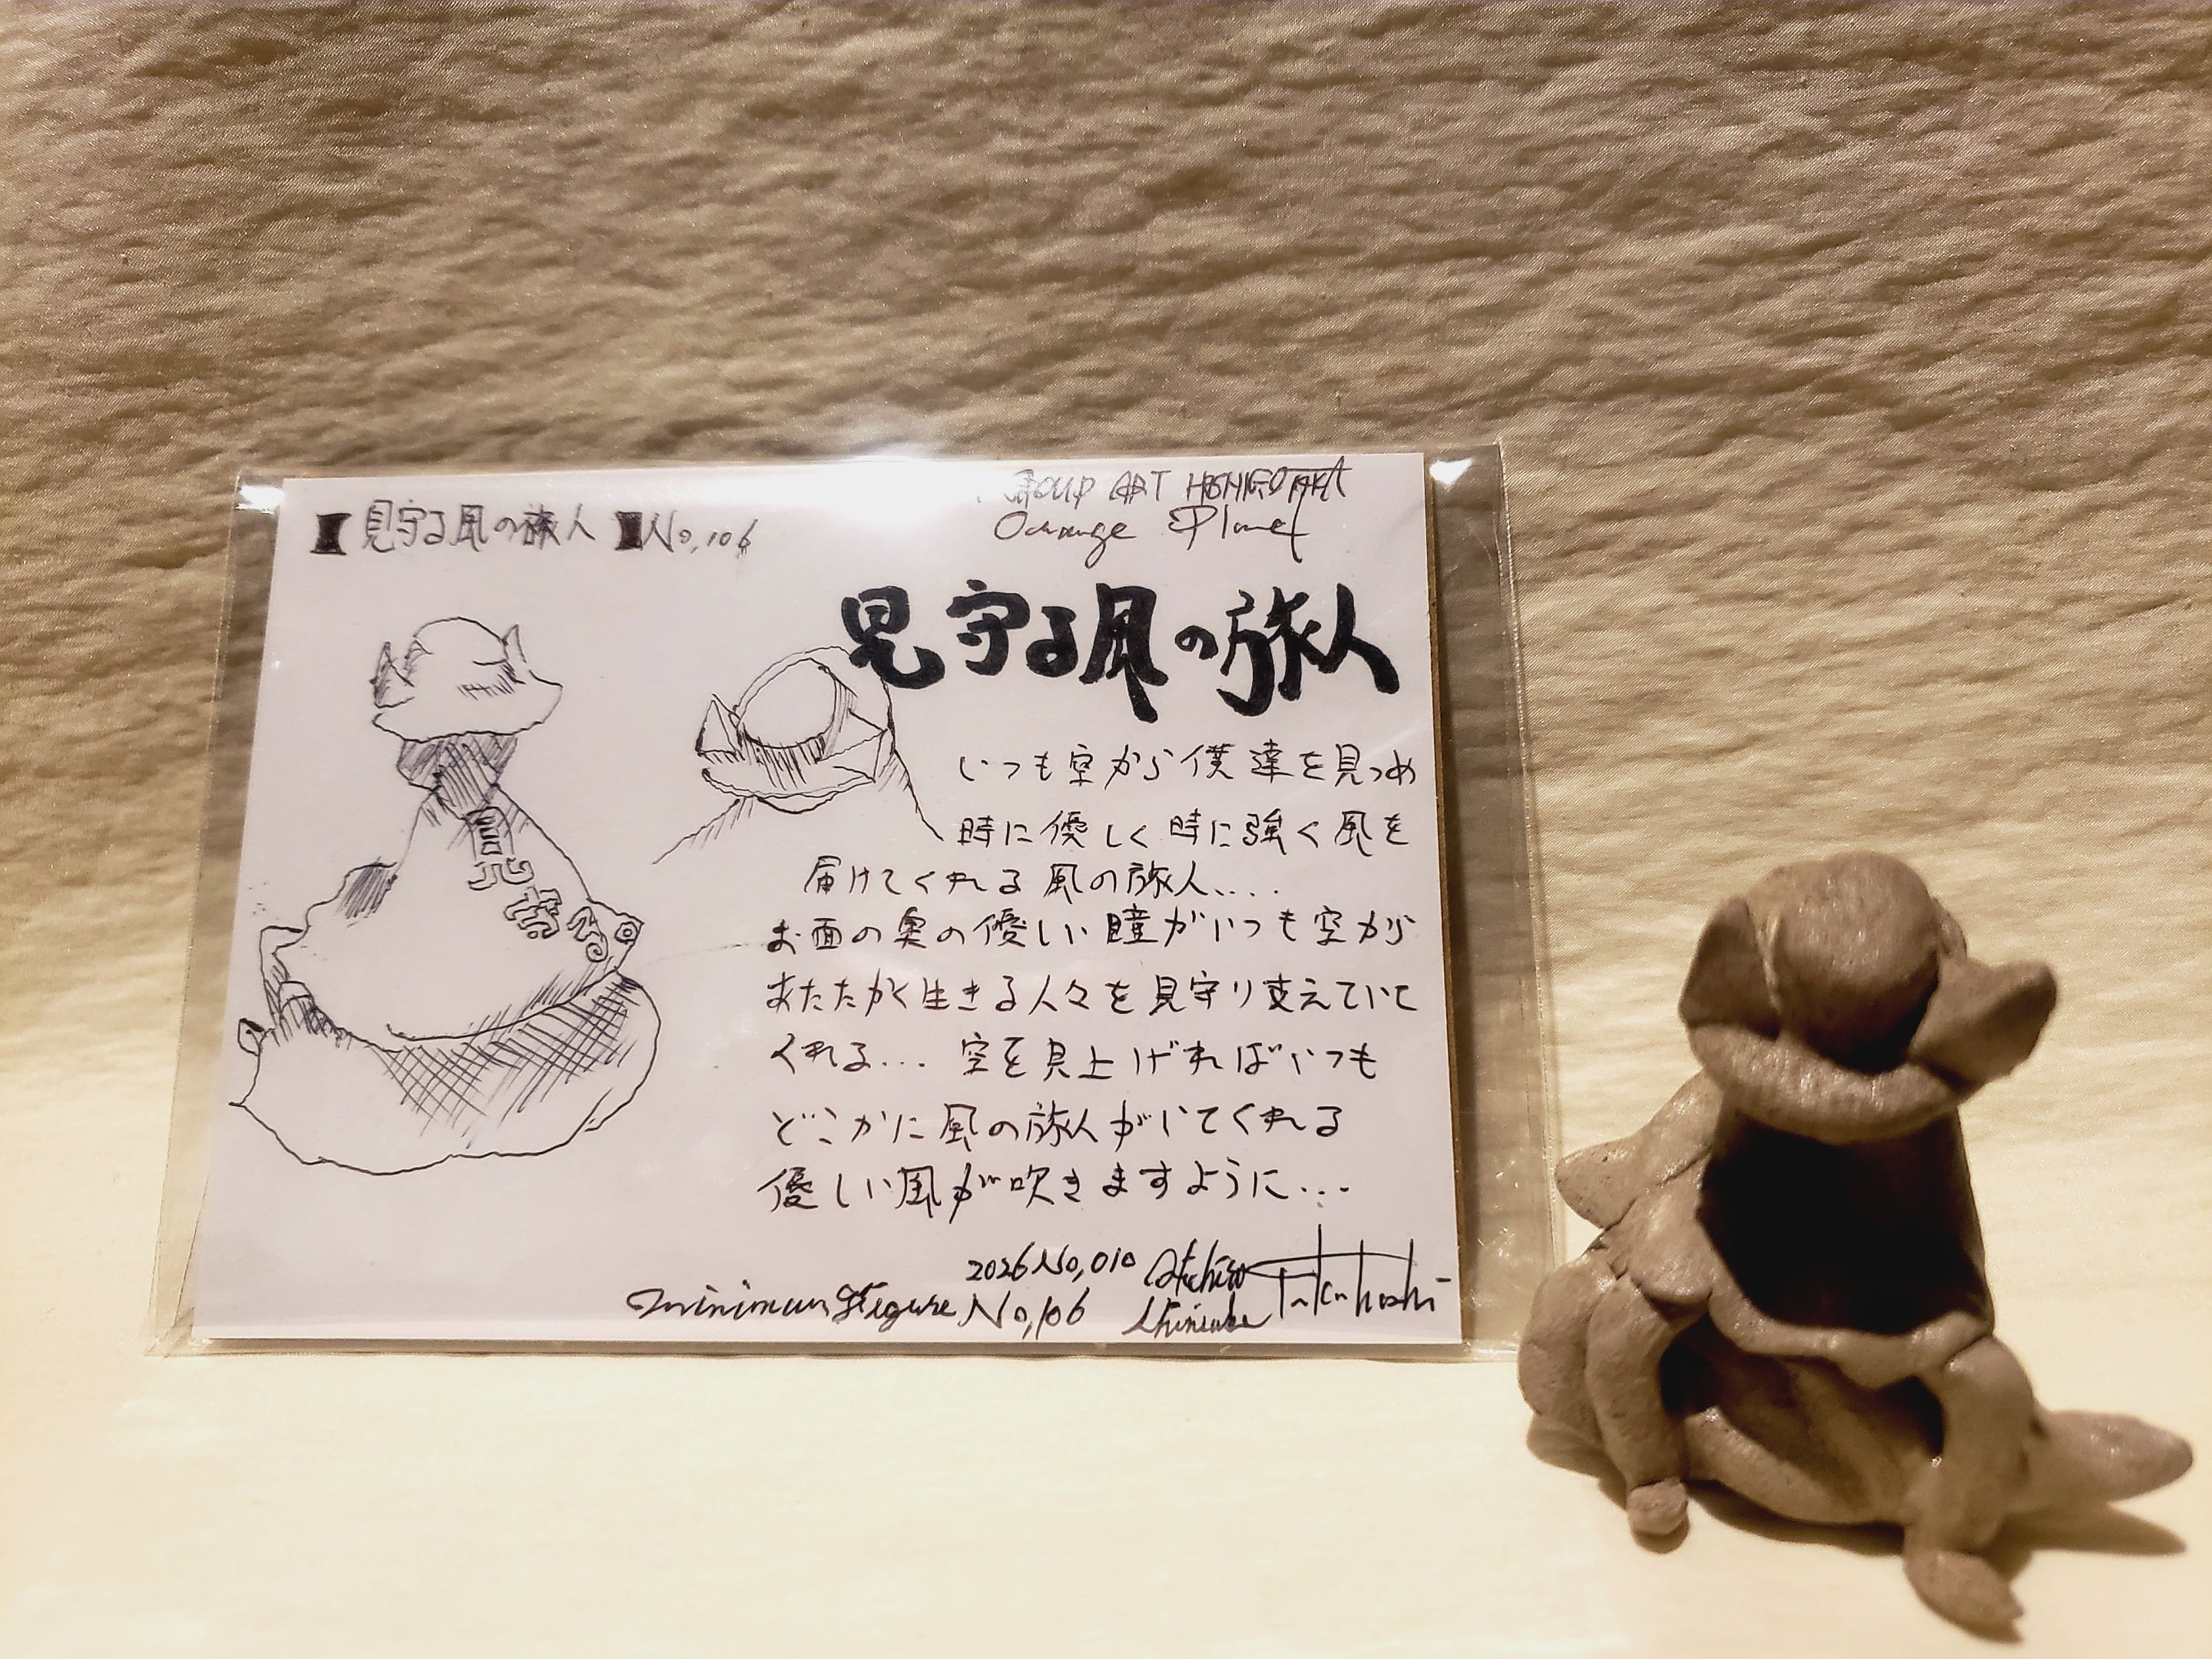 【見守る風の旅人】No,106
GROUP ART HOSHIGOTAKA
Orange Planet
見守る風の旅人
いつも空から僕達を見つめ
時に優しく時に強く風を
届けてくれる風の旅人....
お面の奥の優しい瞳がいつも空から
あたたかく生きる人々を見守り支えていて
くれる... 空を見上げればいつも
どこかに風の旅人がいてくれる
優しい風が吹きますように...
見守る
2026 No,010
minimum figure No,106
Takahashi